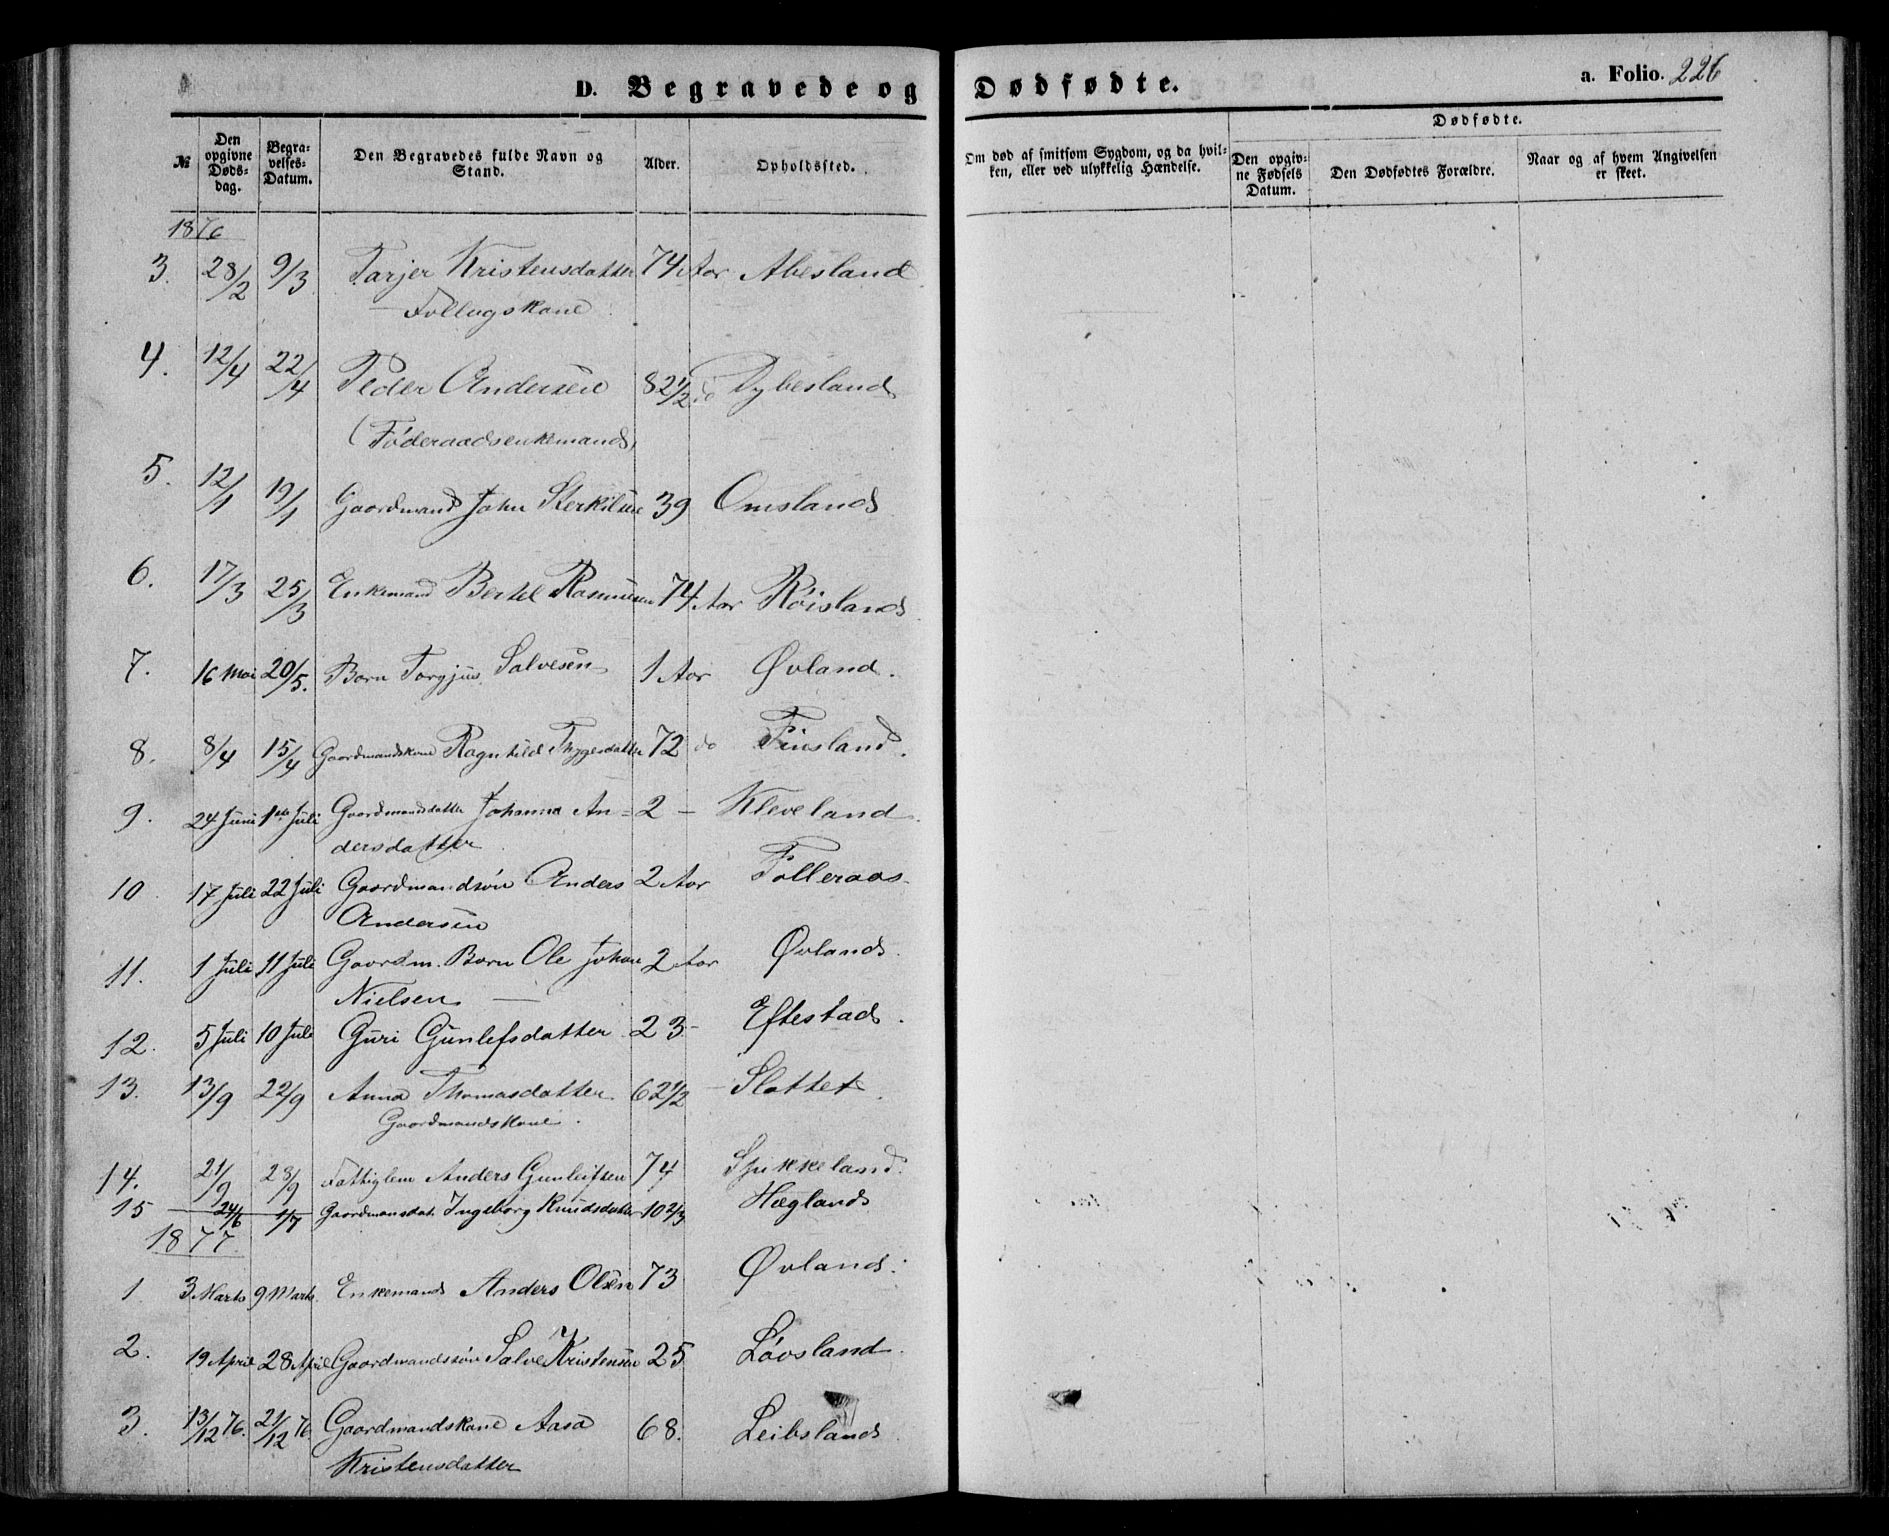 D. Begravede og Dødfødte. a. Folio. 226
№
Den opgivne Døds-dag.
Begra-velses-Datum.
Den Begravedes fulde Navn og Stand.
Alder.
Opholdssted.
Om død af smitsom Sygdom, og da hvil-ken, eller ved ulykkelig Hændelse.
Dødfødte.
Den opgiv-ne Fødsels Datum.
Den Dødfødtes Forældre.
Naar og af hvem Angivelsen er skeet.
1876
3. 28/2 9/3 Tarjer Kristensdatter 74 Aar Abesland
Follogskone
4. 12/4 22/4 Peder Andersen 82 1/2 do Dybesland
(Föderaadsenkemand)
5. 12/1 19/1 Gaardmand John Sterkilsen 39 Omsland
6. 17/3 25/3 Enkemand Bertel Rasmusen 74 Aar Röisland
7. 16 Mai 20/5. Barn Torgjus Salvesen 1 Aar Øvland.
8. 8/4 15/4 Gaardmandskone Ragnhild Thygesdatter 72 do Finsland.
9. 24 Juni 1ste Juli Gaardmandsdatter Johanna An= 2 - Kleveland.
dersdatter
10 17 Juli 22 Juli Gaardmandsön Anders 2 Aar Folleraas.
Andersen
11. 1 Juli 11 Juli Gaardm. Barn Ole Johan 2 Aar Øvland.
Nielsen —
12. 5 Juli 10 Juli Guri Gunlefsdatter 23 - Eftestad.
13. 13/9 22/9 Anna Thomasdatter 62 1/2 - Slottet.
Gaardmandskone.
14. 21/9 28/9 Fattiglem Anders Gunleifsen 74 Spikkeland.
15 24/6 1/7 Gaardmansdat. Ingeborg Knudsdatter 10 2/3 Hægland
1877
1. 3 Marts 9 Marts. Enkemand Anders Olsen 73 Øvland.
2. 19 April 28 April Gaardmandsön Salve Kristensen 25 Lövsland.
3. 13/12 76. 21/12 76. Gaardmandskone Aasa 68. Leibsland
Kristensdatter